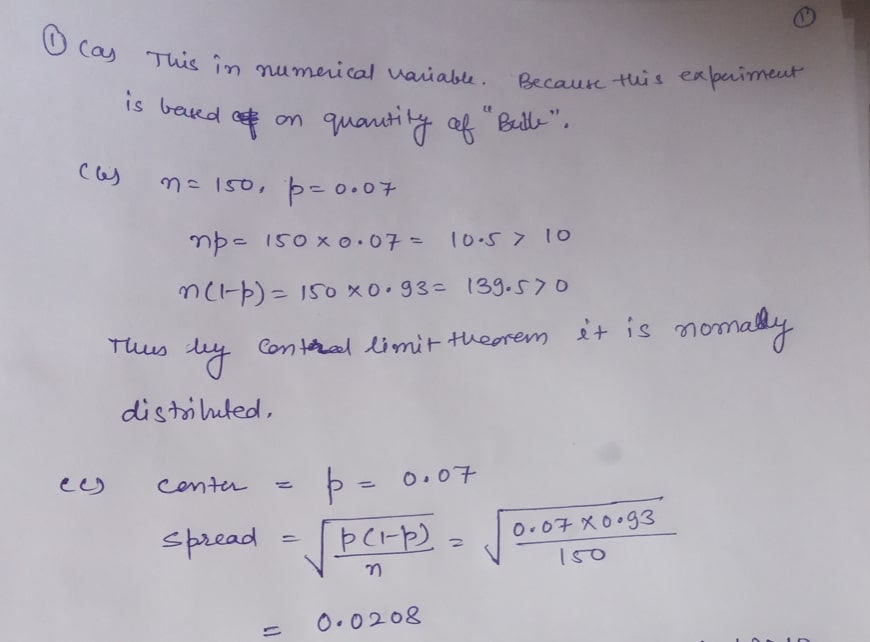 ①
① (a) This in numerical variable. Because this experiment
is based on quantity of "Bulb".
(b) n = 150, p = 0.07
np = 150 × 0.07 = 10.5 > 10
n(1-p) = 150 × 0.93 = 139.5 > 0
Thus by central limit theorem it is nomally
distributed.
(c) center = p = 0.07
spread = √(p(1-p)/n) = √(0.07 × 0.93/150)
= 0.0208